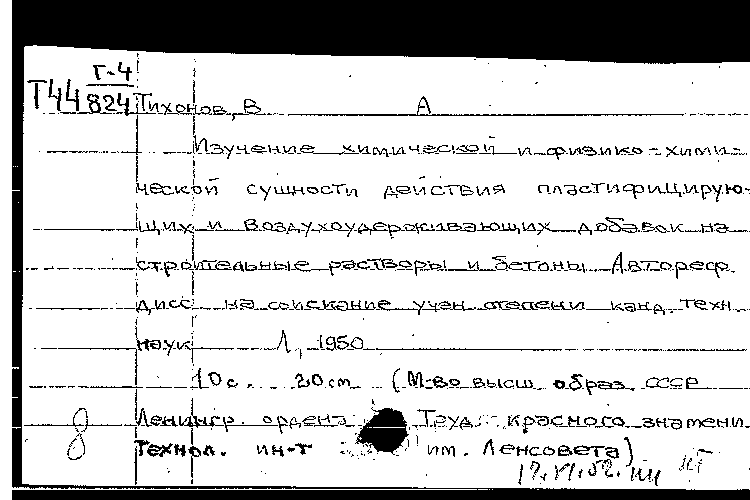 Г-4
Т44 824 Тихонов, В А
Изучение химической и физико-хими-
ческой сущности действия пластифицирую-
щих и воздухоудерживающих добавок на
строительные растворы и бетоны. Автореф.
дисс. на соискание учен. степени канд. техн.
наук Л., 1950
10 с. 20 см (М-во высш. образ. СССР
Ленингр. ордена Труд. красного знамени
8 Технол. ин-т им. Ленсовета)